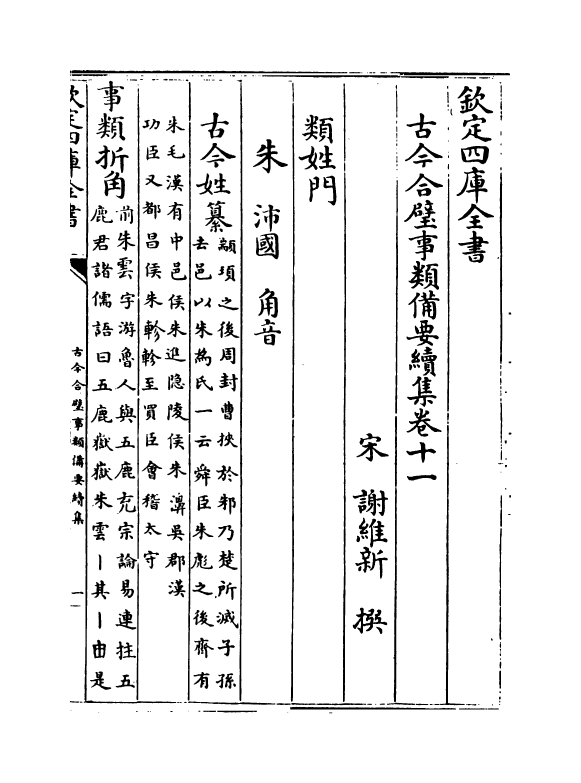 欽定四庫全書
古今合璧事類備要續集卷十一
宋　謝維新　撰
類姓門
朱　沛國　角音
古今姓纂
顓頊之後周封曹挾於邾乃楚所滅子孫
去邑以朱爲氏一云舜臣朱彪之後齊有
朱毛漢有中邑侯朱進隐陵侯朱濞吳郡漢
功臣又都昌侯朱軫軫至買臣會稽太守
事類折角
前朱雲字游魯人與五鹿充宗論易連拄五
鹿君諸儒語曰五鹿嶽嶽朱雲丨其丨由是
欽定四庫全書
古今合璧事類備要續集
一